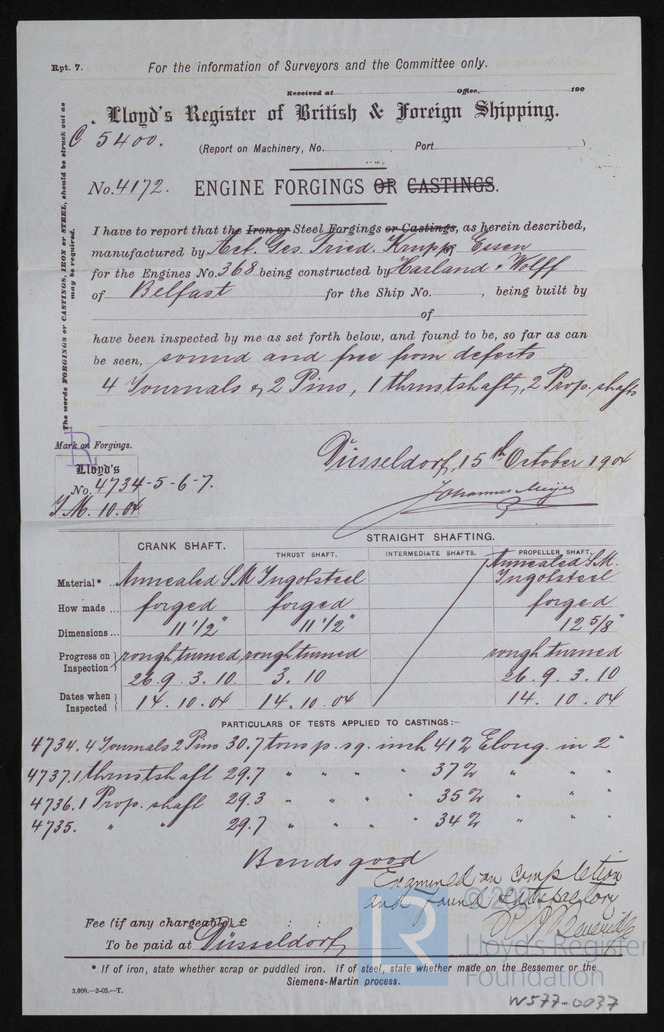 Rpt. 7.
For the information of Surveyors and the Committee only.
Received at Office, 190
Lloyd's Register of British & Foreign Shipping.
C 5400.
(Report on Machinery, No. Port )
No. 4172. ENGINE FORGINGS OR CASTINGS.
The words FORGINGS or CASTINGS, IRON or STEEL, should be struck out as may be required.
I have to report that the Iron or Steel Forgings or Castings, as herein described,
manufactured by Act. Ges. Fried. Krupp of Essen
for the Engines No. 368 being constructed by Harland & Wolff
of Belfast for the Ship No. , being built by
of
have been inspected by me as set forth below, and found to be, so far as can
be seen, sound and free from defects
4 Journals & 2 Pins, 1 thrustshaft, 2 Prop. shafts
Mark on Forgings.
R
Lloyd's
No. 4734-5-6-7.
J.M. 10.04
Düsseldorf, 15th October 1904
Johannes Meyer
CRANK SHAFT. STRAIGHT SHAFTING.
THRUST SHAFT. INTERMEDIATE SHAFTS. PROPELLER SHAFT.
Material* ... Annealed S M Ingotsteel Annealed S.M. Ingotsteel
How made ... forged forged forged
Dimensions ... 11 1/2" 11 1/2" 12 5/8"
Progress on Inspection rough turned rough turned rough turned
26.9. 3.10. 3.10 26.9 3.10
Dates when Inspected 14.10.04 14.10.04 14.10.04
PARTICULARS OF TESTS APPLIED TO CASTINGS:—
4734. 4 Journals 2 Pins 30.7 tons p. sq. inch 41% Elong. in 2"
4737. 1 thrustshaft 29.7 " " " " 37% " " "
4736. 1 Prop. shaft 29.3 " " " " 35% " " "
4735. " " 29.7 " " " " 34% " " "
Bends good
Examined on completion
and found satisfactory
Fee (if any chargeable), £ : :
To be paid at Düsseldorf
* If of iron, state whether scrap or puddled iron. If of steel, state whether made on the Bessemer or the
Siemens-Martin process.
3,000.—2-03.—T.
Lloyd's Register
Foundation
W577-0037